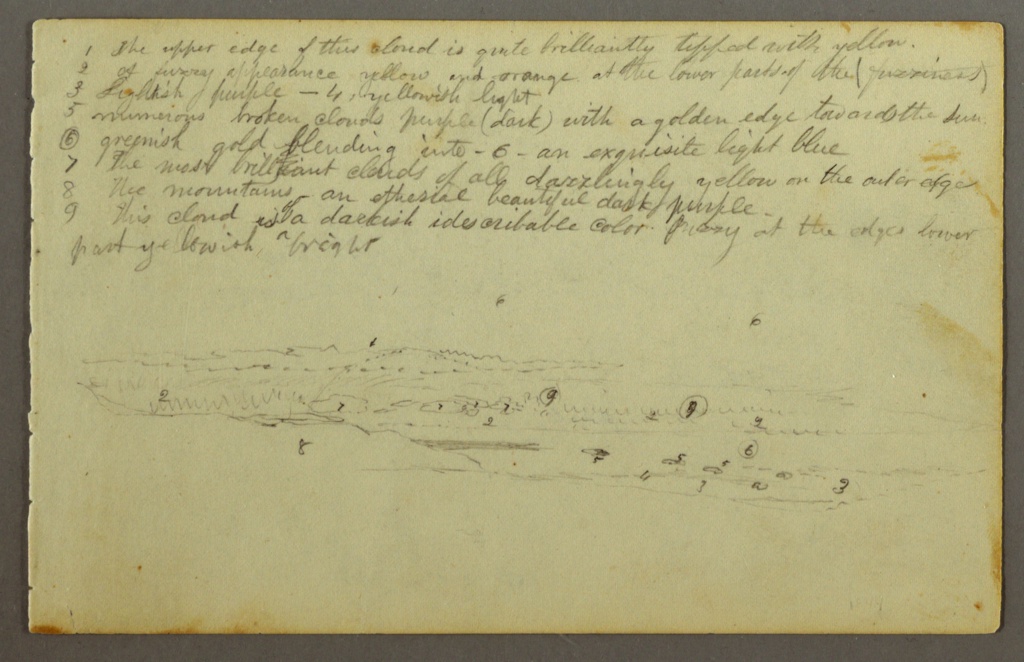 1 The upper edge of this cloud is quite brilliantly tipped with yellow.
2 of fuzzy appearance yellow and orange at the lower parts of the (fuzziness)
3 Lightish purple - 4, yellowish light
5 numerous broken clouds purple (dark) with a golden edge towards the sun.
6 greenish gold blending into - 6 - an exquisite light blue
7 The most brilliant clouds of all dazzlingly yellow on the outer edge
8 The mountains - an etherial beautiful dark purple -
9 This cloud is a darkish idescribable color. fuzzy at the edges lower
part yellowish, bright
6
6
1
2 7 7 7 9 9
2 4
8 6
5 5 5
4 3 2 3